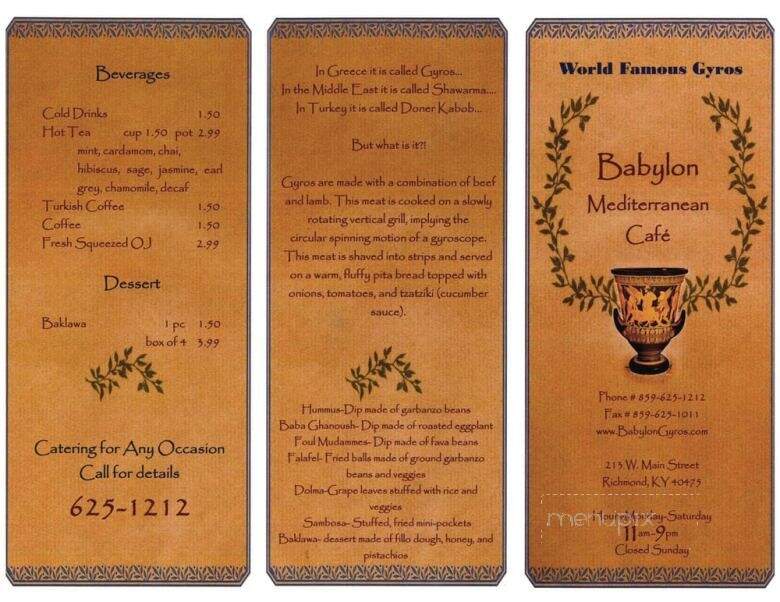 Beverages
Cold Drinks 1.50
Hot Tea cup 1.50 pot 2.99
mint, cardamom, chai,
hibiscus, sage, jasmine, earl
grey, chamomile, decaf
Turkish Coffee 1.50
Coffee 1.50
Fresh Squeezed OJ 2.99
Dessert
Baklawa 1 pc 1.50
box of 4 3.99
Catering for Any Occasion
Call for details
625-1212
In Greece it is called Gyros...
In the Middle East it is called Shawarma....
In Turkey it is called Doner Kabob...
But what is it?!
Gyros are made with a combination of beef
and lamb. This meat is cooked on a slowly
rotating vertical grill, implying the
circular spinning motion of a gyroscope.
This meat is shaved into strips and served
on a warm, fluffy pita bread topped with
onions, tomatoes, and tzatziki (cucumber
sauce).
Hummus-Dip made of garbanzo beans
Baba Ghanoush- Dip made of roasted eggplant
Foul Mudammes- Dip made of fava beans
Falafel- Fried balls made of ground garbanzo
beans and veggies
Dolma-Grape leaves stuffed with rice and
veggies
Sambosa- Stuffed, fried mini-pockets
Baklawa- dessert made of fillo dough, honey, and
pistachios
World Famous Gyros
Babylon
Mediterranean
Café
Phone # 859-625-1212
Fax # 859-625-1011
www.BabylonGyros.com
213 W. Main Street
Richmond, KY 40475
menupix
Hours Monday-Saturday
11am-9pm
Closed Sunday